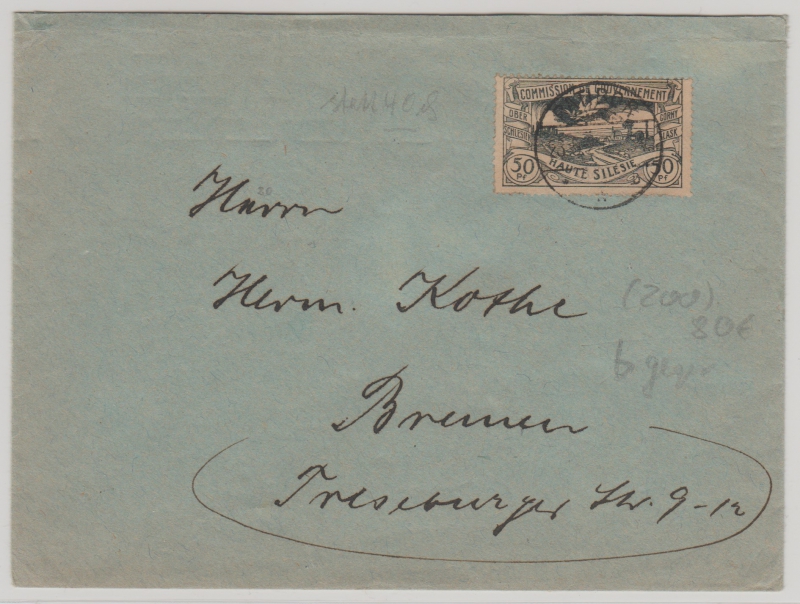 COMMISSION DE GOUVERNEMENT
OBER SCHLESIEN
GÓRNY ŚLĄSK
HAUTE SILESIE
50 Pf
50 Pf
Herrn
Herm. Kothe
(200).
80€
Bremen
Treseburger Str. 9-12